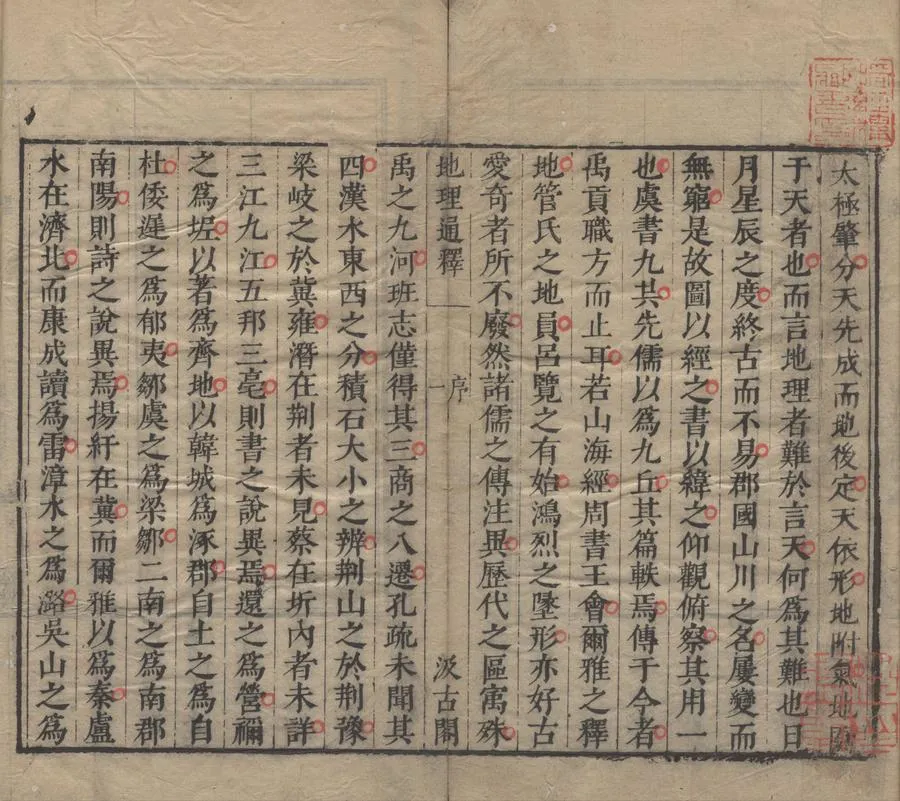 太極肇分天先成而地後定天依形地附氣地囿
于天者也而言地理者難於言天何為其難也日
月星辰之度終古而不易郡國山川之名屢變而
無窮是故圖以經之書以緯之仰觀俯察其用一
也虞書九共先儒以為九丘其篇軼焉傳于今者
禹貢職方而止耳若山海經周書王會爾雅之釋
地管氏之地員呂覽之有始鴻烈之墬形亦好古
愛奇者所不廢然諸儒之傳注異歷代之區寓殊
地理通釋 序 一 汲古閣
禹之九河班志僅得其三商之八遷孔疏未聞其
四漢水東西之分積石大小之辨荆山之於荆豫
梁岐之於冀雍潛在荆者未見蔡在圻內者未詳
三江九江五邦三亳則書之說異焉還之為營禰
之為坭以著為齊地以韓城為涿郡自土之為自
杜倭遲之為郁夷鄒虞之為梁鄒二南之為南郡
南陽則詩之說異焉揚紆在冀而爾雅以為秦盧
水在濟北而康成讀為雷漳水之為潞吳山之為